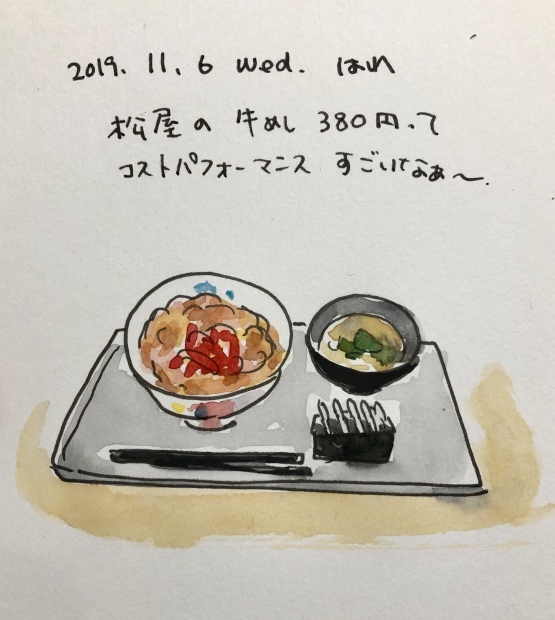 2019. 11. 6 wed. はれ
松屋の 牛めし 380円って
コストパフォーマンス すごいなぁ〜.